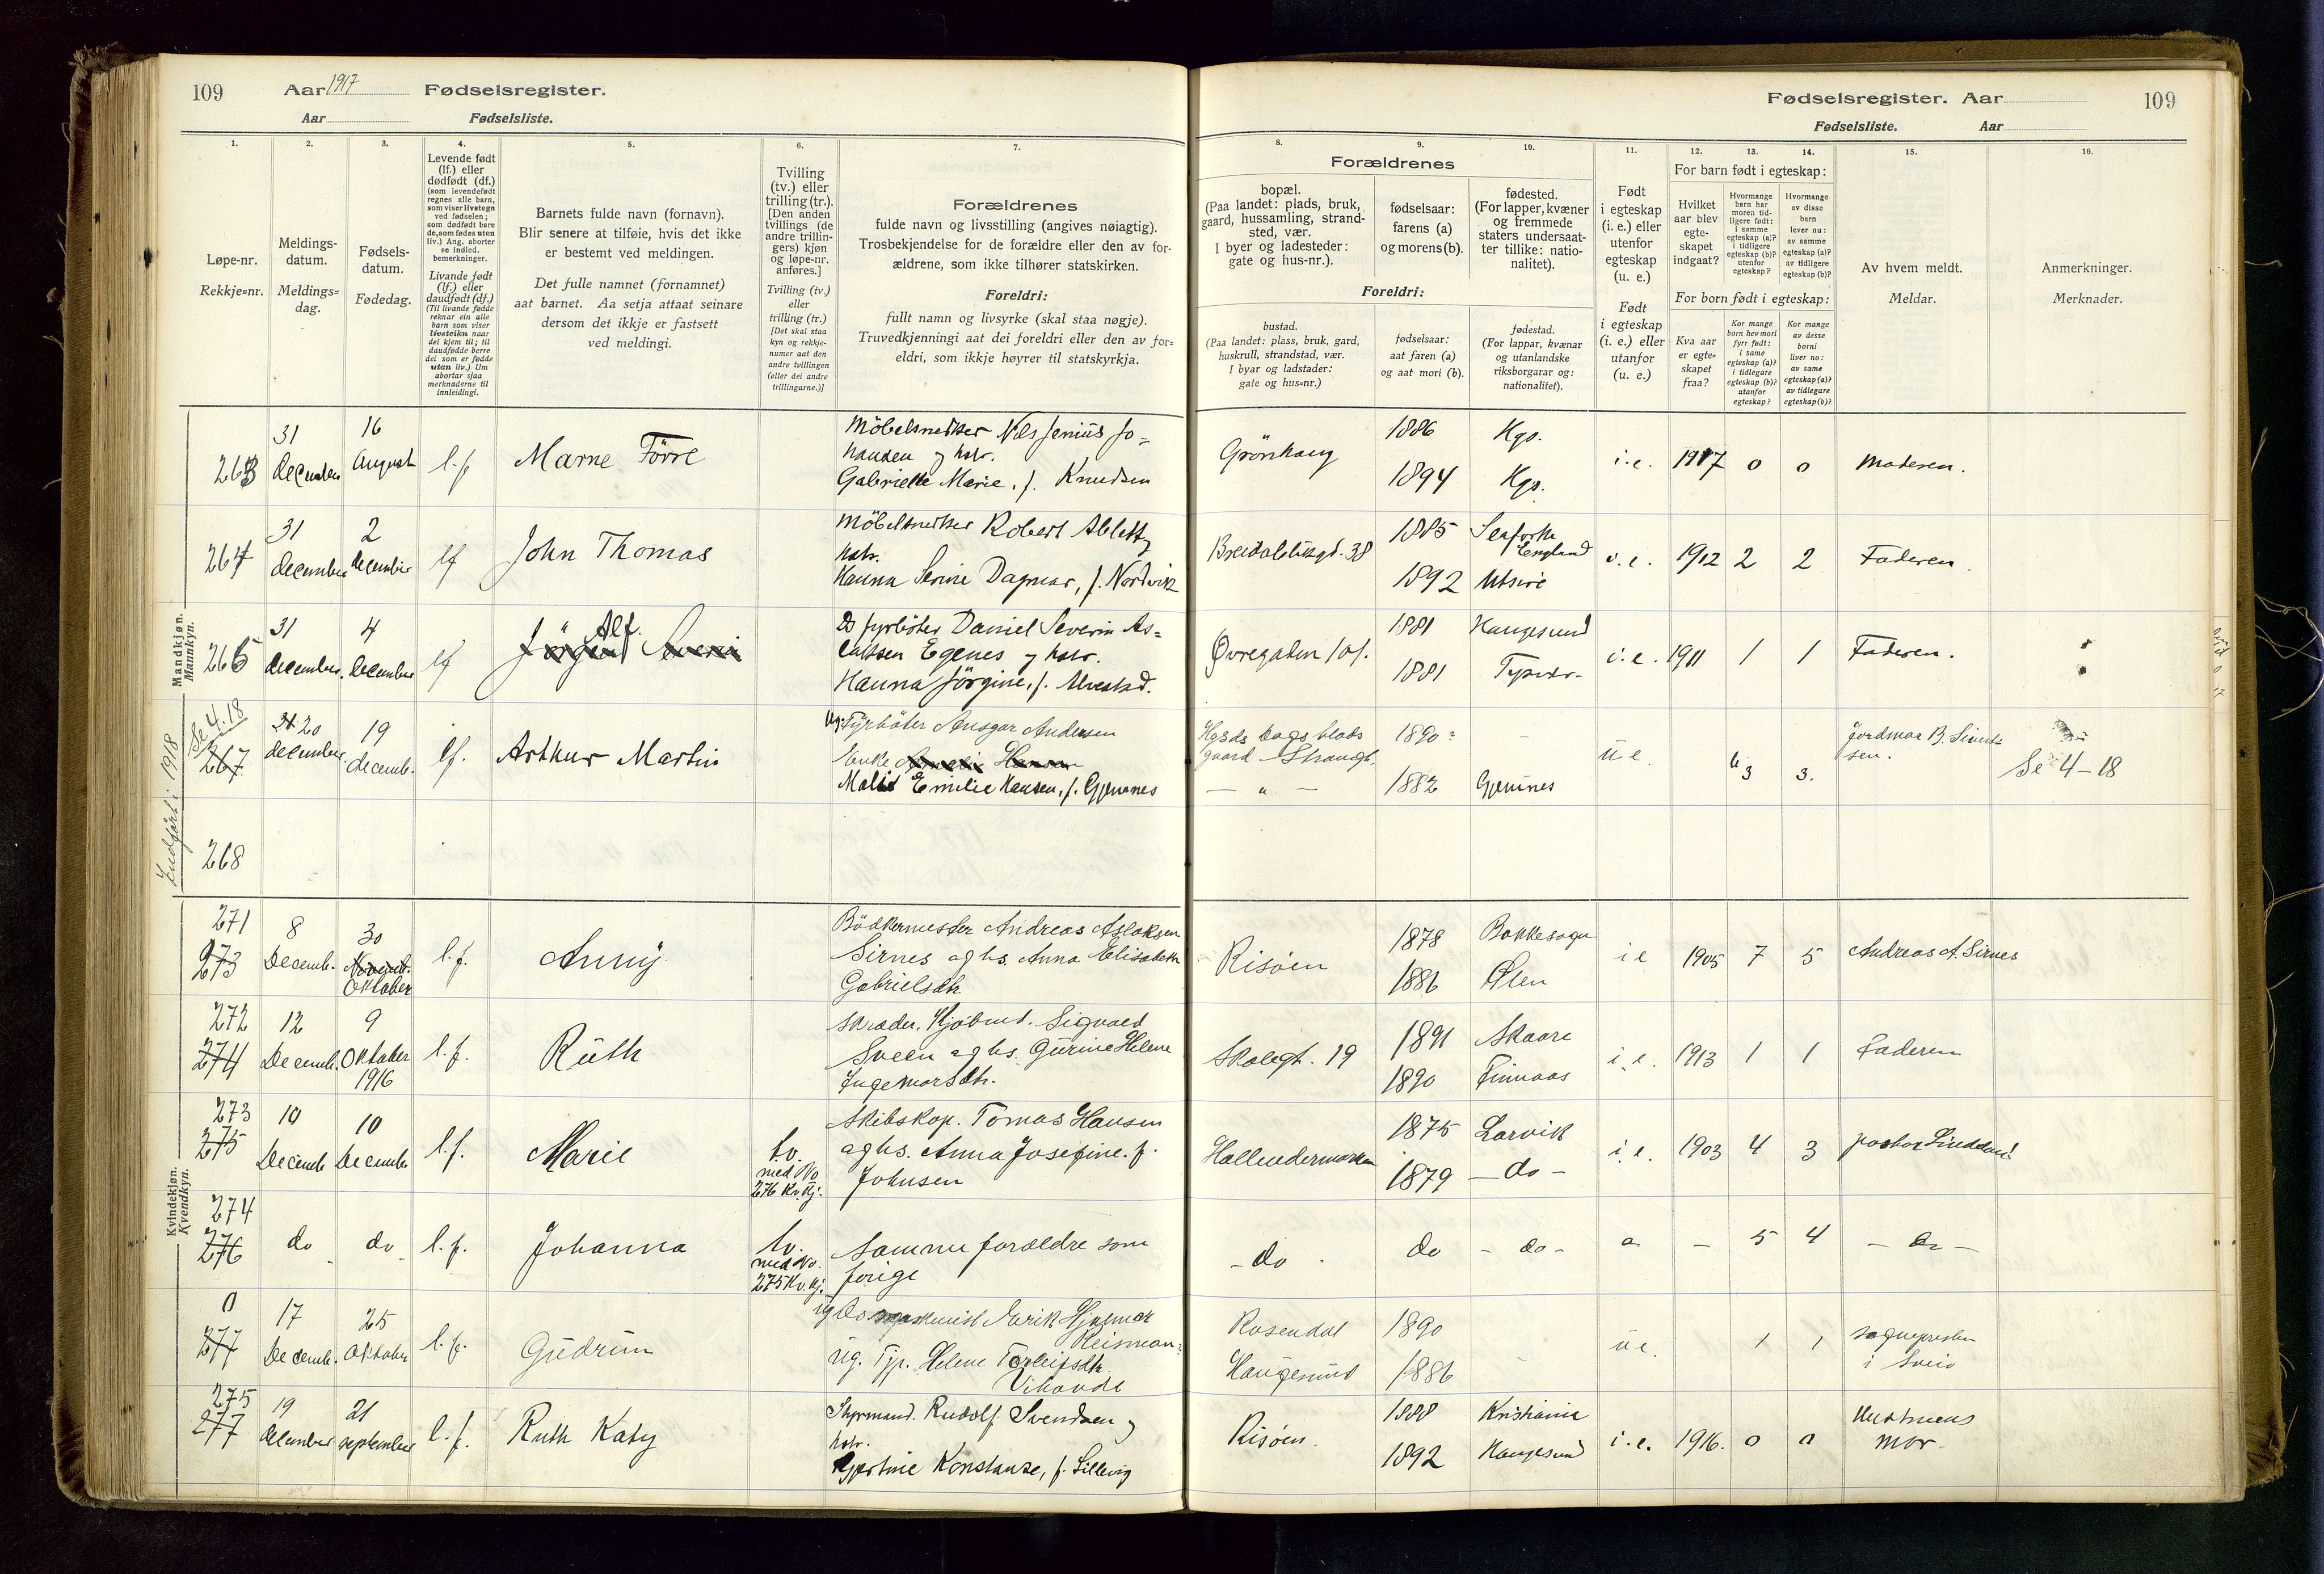 109 Aar 1917 Fødselsregister.
Aar Fødselsliste.
Fødselsregister. Aar 109
Fødselsliste. Aar
1.
Løpe-nr.
Rekkje=nr.
2.
Meldings-
datum.
Meldings-
dag.
3.
Fødsels-
datum.
Fødedag.
4.
Levende født
(lf.) eller
dødfødt (df.)
(som levendefødt
regnes alle barn,
som viser livstegn
ved fødselen;
som dødfødt bare
de, som fødes uten
liv.) Ang. aborter
se indled.
bemerkninger.
Livande født
(lf.) eller
daudfødt (df.)
(Til livande fødde
reknar ein alle
barn som viser
livsteikn naar
dei kjem til; til
daudfødde berre
dei som er fødde
utan liv.) Um
abortar sjaa
merknaderne til
innleidingi.
5.
Barnets fulde navn (fornavn).
Blir senere at tilføie, hvis det ikke
er bestemt ved meldingen.
Det fulle namnet (fornamnet)
aat barnet. Aa setja attaat seinare
dersom det ikkje er fastsett
ved meldingi.
6.
Tvilling
(tv.) eller
trilling (tr.).
[Den anden
tvillings (de
andre trillin-
gers) kjøn
og løpe-nr.
anføres.]
Tvilling (tv.)
eller
trilling (tr.)
[Det skal staa
kyn og rekkje-
numer aat den
andre tvillingen
(eller dei andre
trillingarne.)]
7.
Forældrenes
fulde navn og livsstilling (angives nøiagtig).
Trosbekjendelse for de forældre eller den av for-
ældrene, som ikke tilhører statskirken.
Foreldri:
fullt namn og livsyrke (skal staa nøgje).
Truvedkjenningi aat dei foreldri eller den av for=
eldri, som ikkje høyrer til statskyrkja.
8.
Forældrenes
bopæl.
(Paa landet: plads, bruk,
gaard, hussamling, strand-
sted, vær.
I byer og ladesteder:
gate og hus-nr.).
Foreldri:
bustad.
(Paa landet: plass, bruk, gard,
huskrull, strandstad, vær.
I byar og ladstader:
gate og hus=nr.)
9.
fødselsaar:
farens (a)
og morens (b).
fødselsaar:
aat faren (a)
og aat mori (b).
10.
fødested.
(For lapper, kvæner
og fremmede
staters undersaat-
ter tillike: natio-
nalitet).
fødestad.
(For lappar, kvænar
og utanlandske
riksborgarar og:
nationalitet).
11.
Født
i egteskap
(i. e.) eller
utenfor
egteskap
(u. e.)
Født
i egteskap
(i. e.) eller
utanfor
(u. e.)
12.
For barn født i egteskap:
Hvilket
aar blev
egte-
skapet
indgaat?
For born født i egteskap:
Kva aar
er egte-
skapet
fraa?
13.
Hvormange
barn har
moren tid-
ligere født:
i samme
egteskap (a)?
i tidligere
egteskap (b)?
utenfor
egteskap?
Kor mange
born hev mori
fyrr født:
i same
egteskap (a)?
i tidlegare
egteskap (b)?
utanfor
egteskap?
14.
Hvormange
av disse
barn
lever nu:
av samme
egteskap (a)?
av tidligere
egteskap (b)?
Kor mange
av desse
borni
liver no:
av same
egteskap (a)?
av tidlegare
egteskap (b)?
15.
Av hvem meldt.
Meldar.
16.
Anmerkninger.
Merknader.
Mandkjøn.
Mannkyn.
Indført i 1918
263 31 december 16 August l.f. Marne Førre
Möbelsnekker Nils Jenius Jo=
hansen og hstr.
Gabrielle Marie, f. Knudsen
Grönhaug 1886 Kgs. 1894 Kgs. i.e. 1917 0 0 Moderen.
264 31 december 2 december lf John Thomas
Möbelsnekker Robert Ablett og
hstr.
Hanna Serine Dagmar, f. Nordvik
Breidablikgt. 38 1885 Seaforth England 1892 Utsire i.e. 1912 2 2 Faderen.
265 31 december. 4 december lf Jörgen Severin Alf.
Ds fyrbøter Daniel Severin As=
laksen Egenes og hstr.
Hanna Jörgine, f. Alvestad.
Øvregaden 101. 1881 Haugesund 1881 Tysvær- i.e. 1911 1 1 Faderen.
Se 4.18
267 31 20 december. 19 decemb. lf. Arthur Martin
Ug. Fyrböter Ansgar Andersen
Enke Hansen
Malis Emilie Hansen, f. Gjemnes
Hgsds Dagsblads
gaard Strandgt. 1890? – " – 1882 Gjemnes u e. 3 3. Jordmor B. Sivert-
sen. Se 4-18
268
Kvindekjøn.
Kvendkyn.
271
273 8 Decemb. 30 Novemb. Oktober l.f. Anny
Bödkermester Andreas Aslaksen
Sirnes og hs. Anna Elisabeth
Gabrielsdtr.
Risöen 1878 Bokkesogn 1886 Ølen i e 1905 7 5 Andreas A. Sirnes
272
274 12 Decemb. 9 Oktober 1916 l.f. Ruth
Skræder. Kjöbmd. Sigvald
Sveen og hs. Gurine Helene
Ingemarsdtr.
Skolegt. 19 1891 Skaare 1890 Finnaas i.e. 1913 1 1 Faderen
273
275 10 Decemb 10 Decembr l.f. Marie
tv.
med No.
276 Kv.kj.
Skibskap. Tomas Hansen
og hs. Anna Josefine. f.
Johnsen
Hollendermarken 1875 Larvik 1879 – do – i.e. 1903 4 3 pastor Linddal
274
276 do do l.f. Johanna
tv.
med No.
275 Kv.kj.
Samme forældre som
forige
– do do – do – – 5 4 – do –
0
277 17 Decemb. 25 Oktober l.f. Gudrun
Ug. Ds maskinist Henrik Hjalmar
Reisman?
Ug. Tjp. Helene Torleifsdtr.
Vikande
Rosendal 1890 Haugesund 1886 u e. 1 1 sognepresten
i Sveio
275
277 19 december 21 september l.f. Ruth Katy
Styrmand. Rudolf Svendsen og
hstr.
Gjertine Konstanse, f. Lillevig
Risöen. 1888 Kristiania 1892 Haugesund i.e. 1916. 0 0 Hustruens
mor.